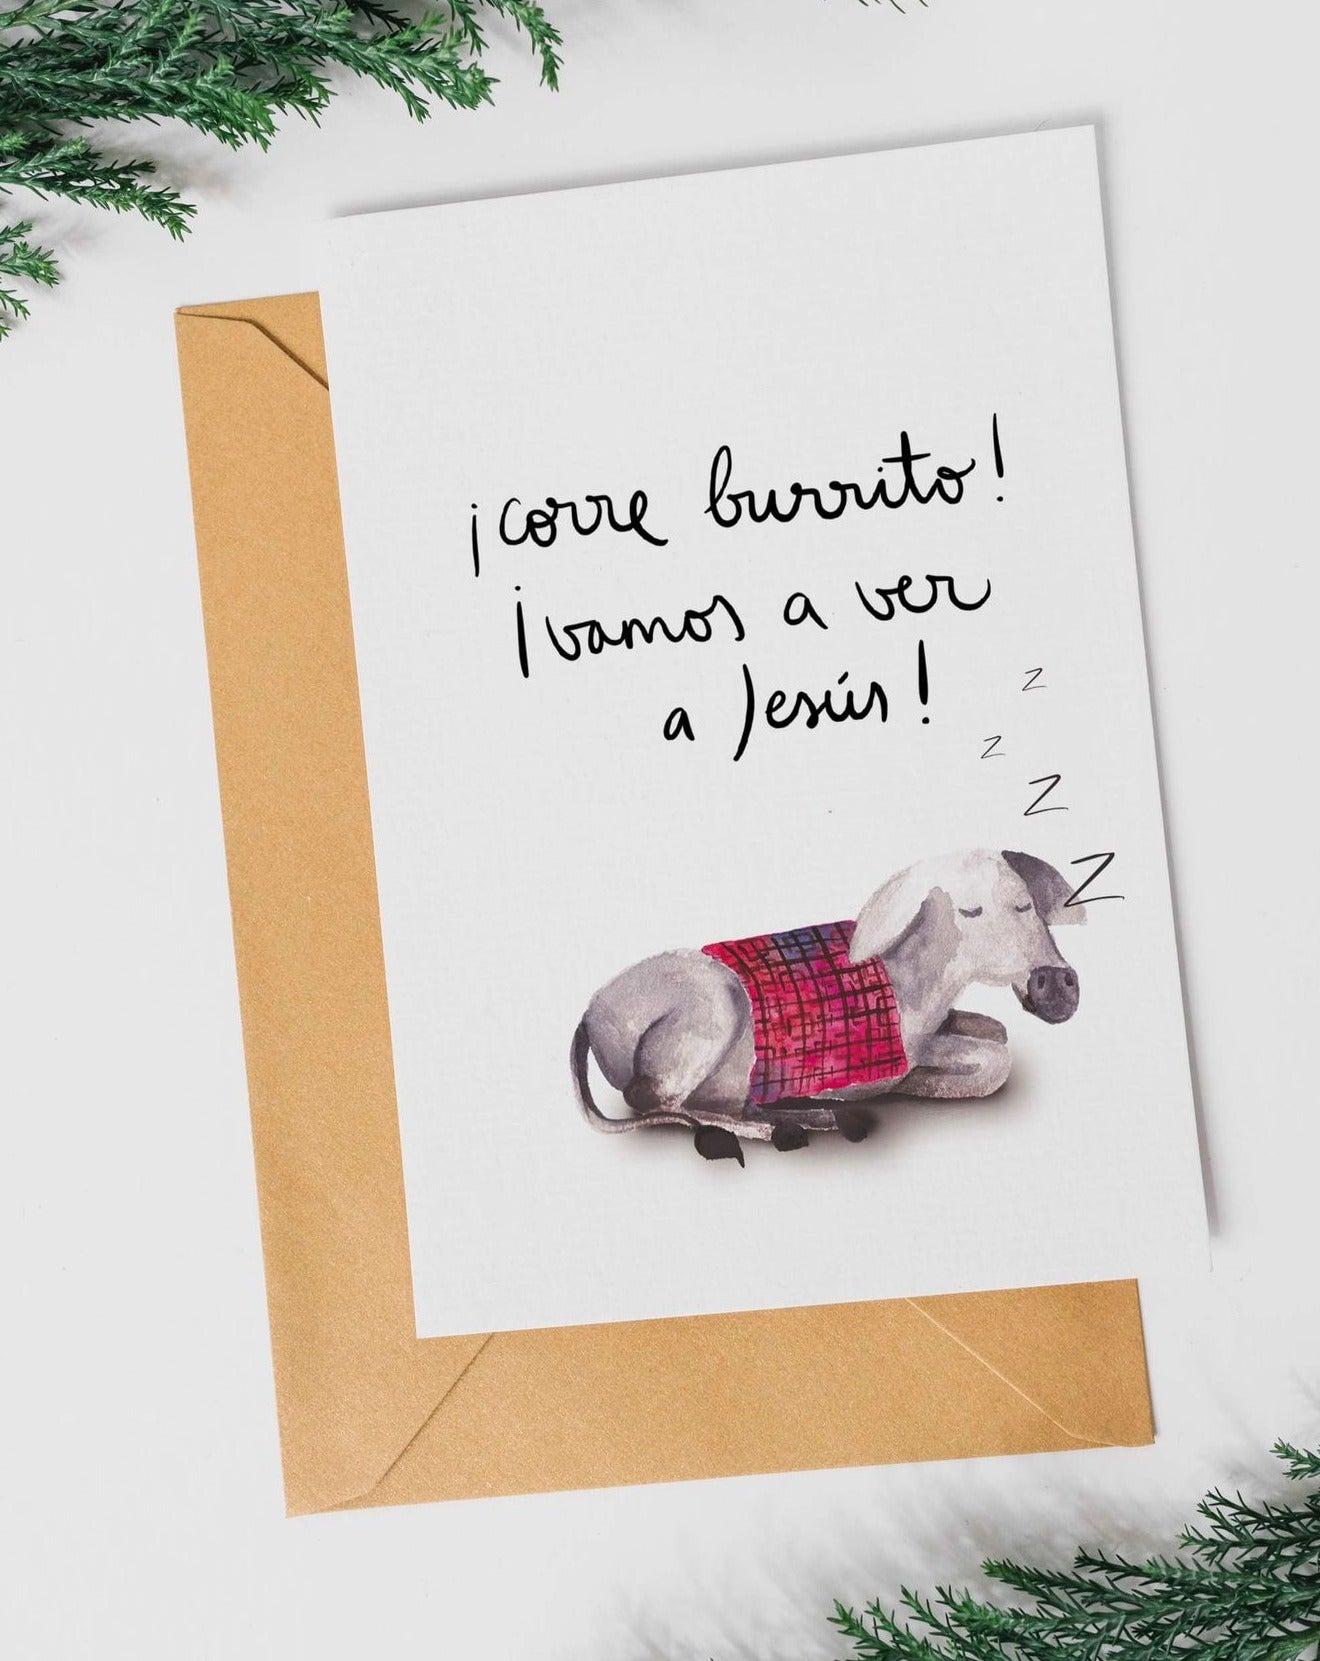 ¡corre burrito!
¡vamos a ver
a Jesús!
z
z
z
z